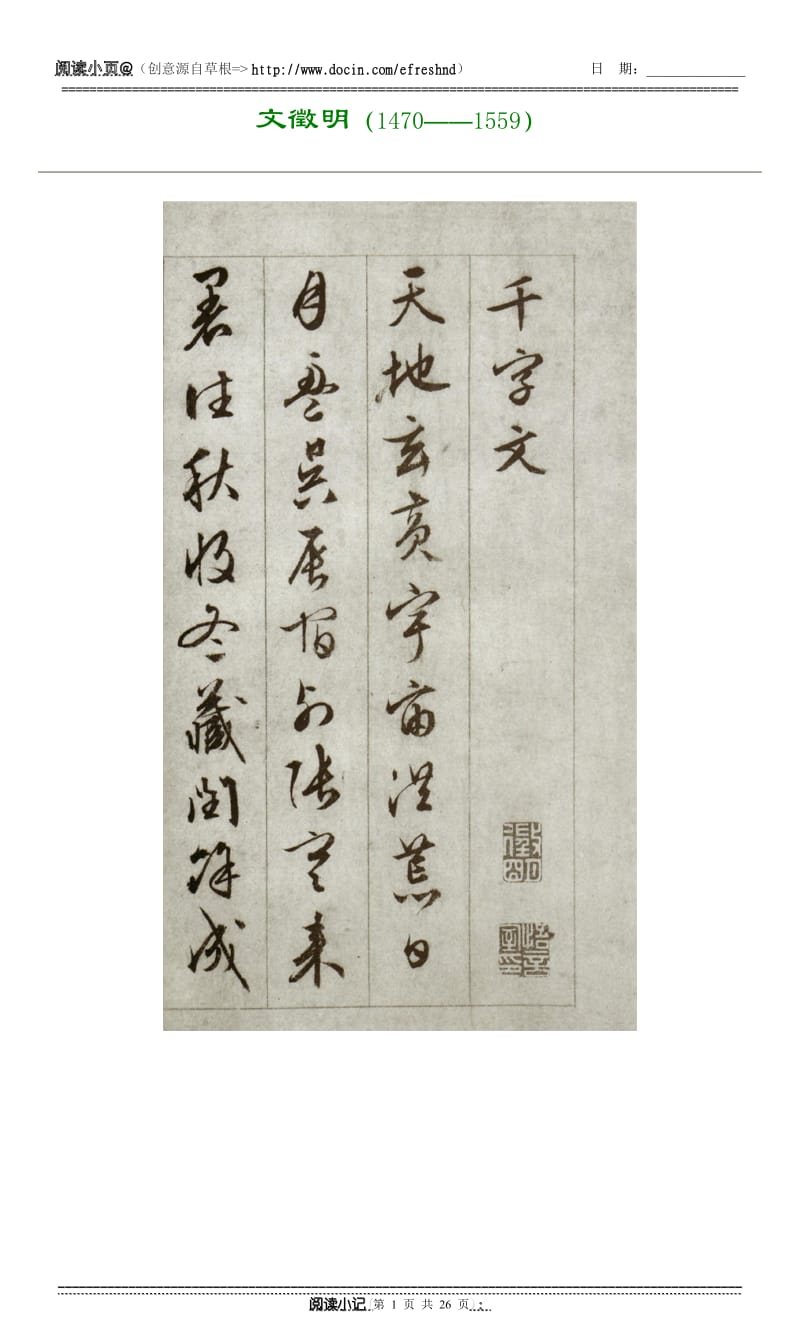 阅读小页@（创意源自草根=> http://www.docin.com/efreshnd）　日　期：______________
文徵明（1470——1559）
千字文
徵明
悟言室印
天地玄黄宇宙洪荒日
月盈昃辰宿列張寒来
暑往秋收冬藏閏餘成
阅读小记 第 1 页 共 26 页：